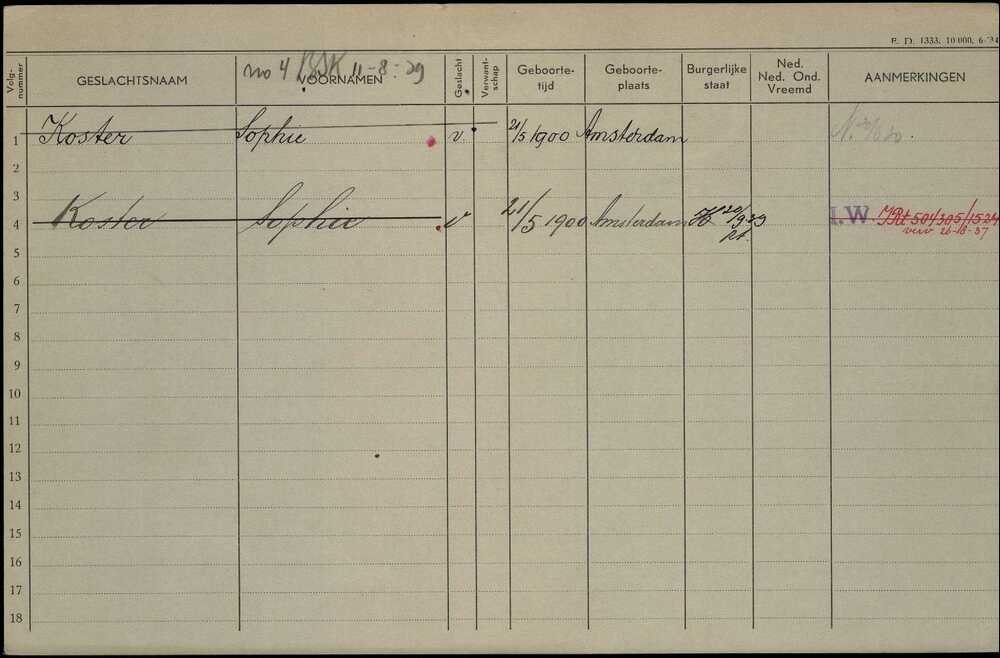 E. D. 1333, 10 000, 6-'34
no 4 BSK 11-8-'39
Volg-nummer GESLACHTSNAAM VOORNAMEN Geslacht Verwant-schap Geboorte-tijd Geboorte-plaats Burgerlijke staat Ned. Ned. Ond. Vreemd AANMERKINGEN
1 Koster Sophie v. 21/5 1900 Amsterdam
2
3
4 Koster Sophie v 21/5 1900 Amsterdam H 20/9-39 I.W. Rt 504/305/1524
verv 26-8-37
5
6
7
8
9
10
11
12
13
14
15
16
17
18